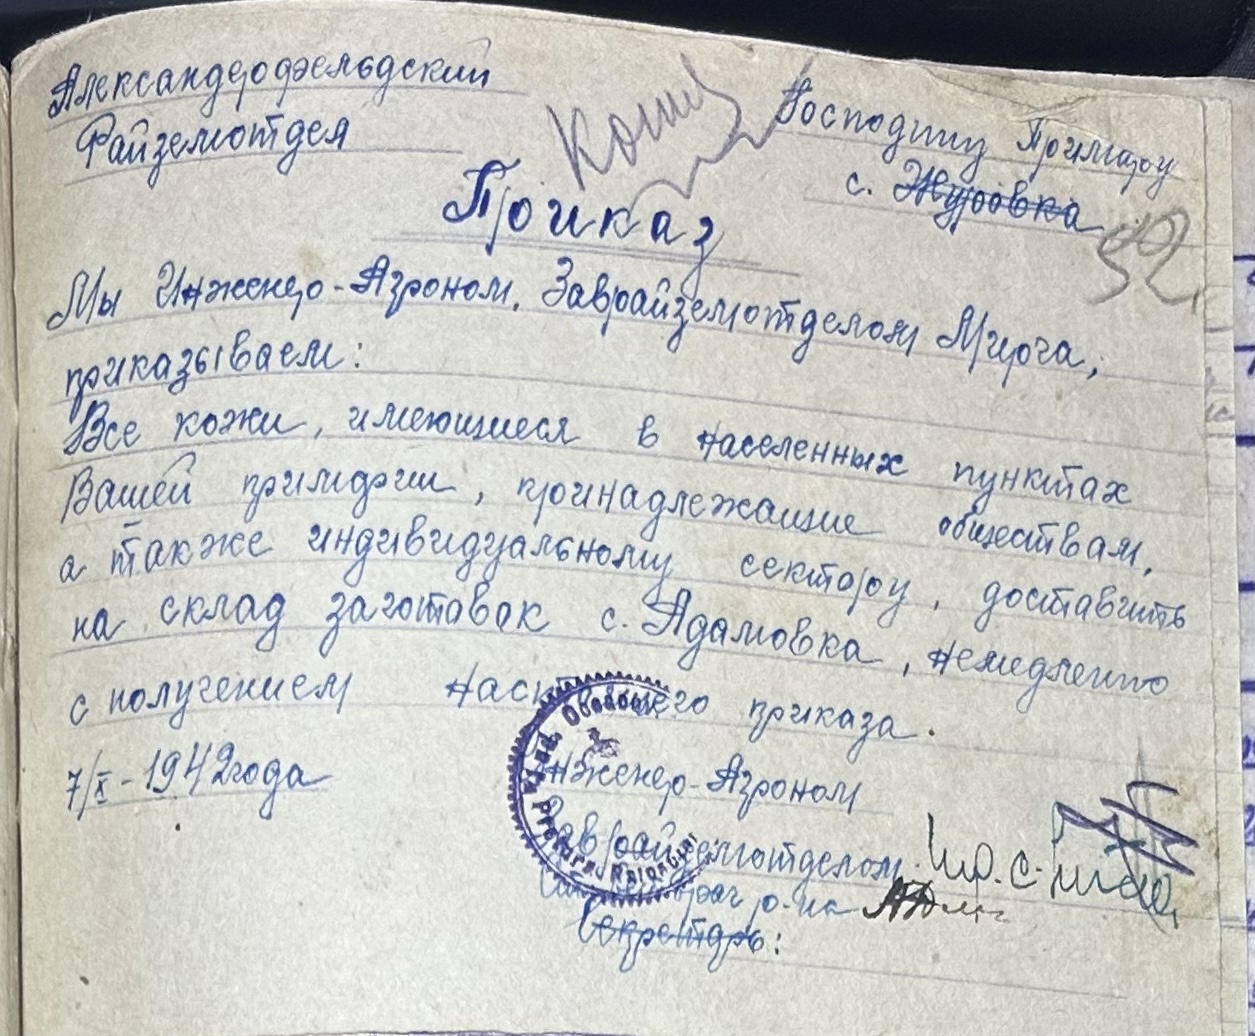 Александерофэльдский
Райземотдел
Господину Примару
с. Журовка
Приказ
Мы Инженер-Агроном, Заврайземотделом Мирча,
приказываем:
Все кожи, имеющиеся в населенных пунктах
Вашей примэрии, принадлежащие обществам,
а также индивидуальному сектору, доставить
на склад заготовок с. Адамовка, немедленно
с получением настоящего приказа.
7/X-1942 года
Инженер-Агроном
Заврайземотделом
врач р-на
Секретарь: